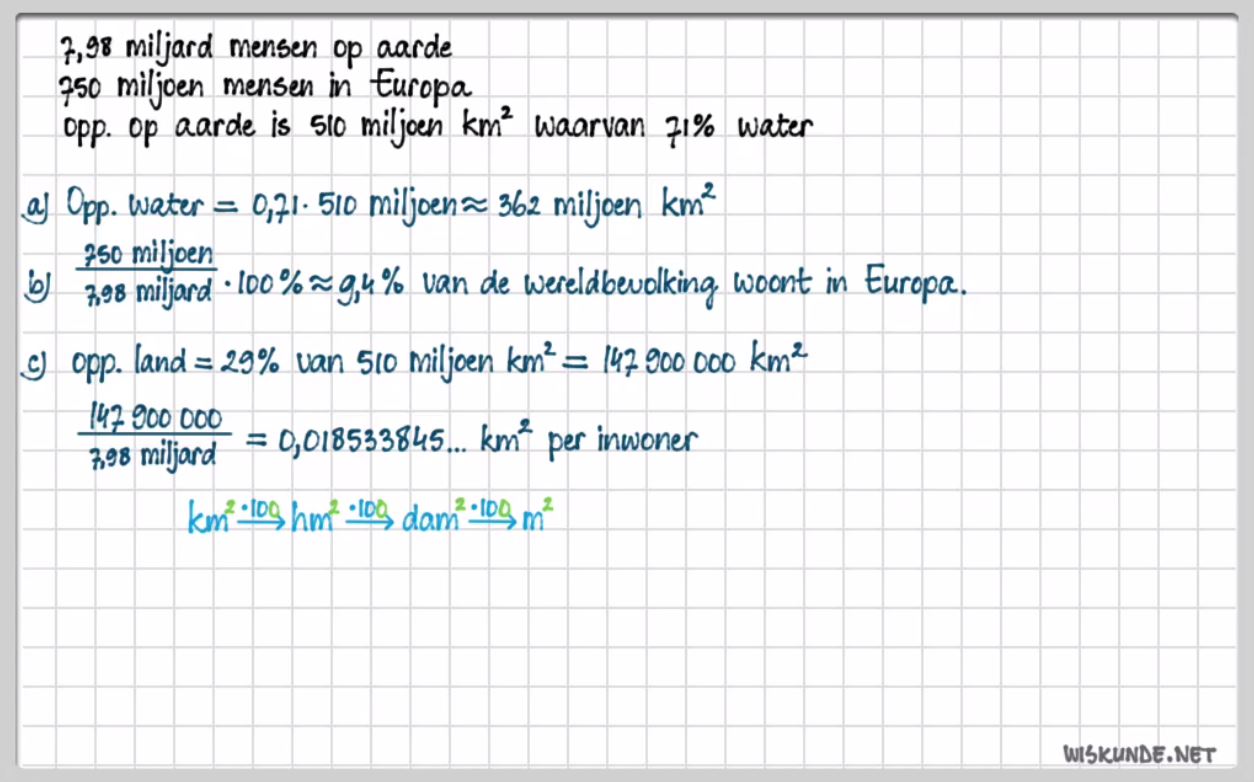 7,98 miljard mensen op aarde
750 miljoen mensen in Europa
opp. op aarde is 510 miljoen km² waarvan 71% water
a) Opp. water = 0,71 · 510 miljoen ≈ 362 miljoen km²
b) 750 miljoen / 7,98 miljard · 100% ≈ 9,4% van de wereldbevolking woont in Europa.
c) opp. land = 29% van 510 miljoen km² = 147 900 000 km²
147 900 000 / 7,98 miljard = 0,018533845... km² per inwoner
km² ·100→ hm² ·100→ dam² ·100→ m²
WISKUNDE.NET